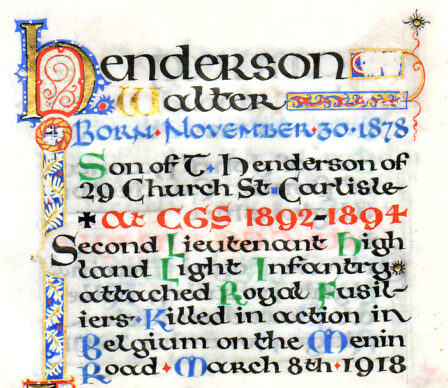 Henderson
Walter
Born·November·30·1878
Son of T·Henderson of
29 Church St·Carlisle
✠ At CGS 1892-1894
Second Lieutenant High
land Light Infantry
attached Royal Fusil-
iers·Killed in action in
Belgium on the Menin
Road·March 8th·1918